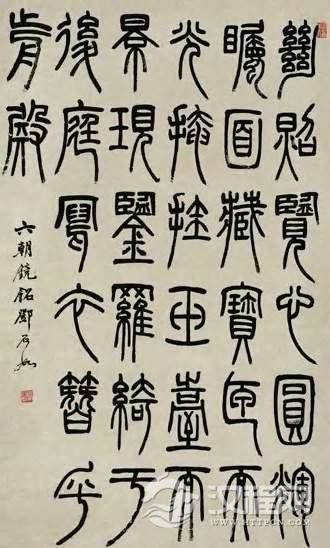 絕照覽心圓輝
矚面藏寶匣而
光掩挂玉臺而
景現鑒羅綺于
後庭寫衣簪乎
前殿
六朝鏡銘鄧石如
汉程网
HTTPCN.COM